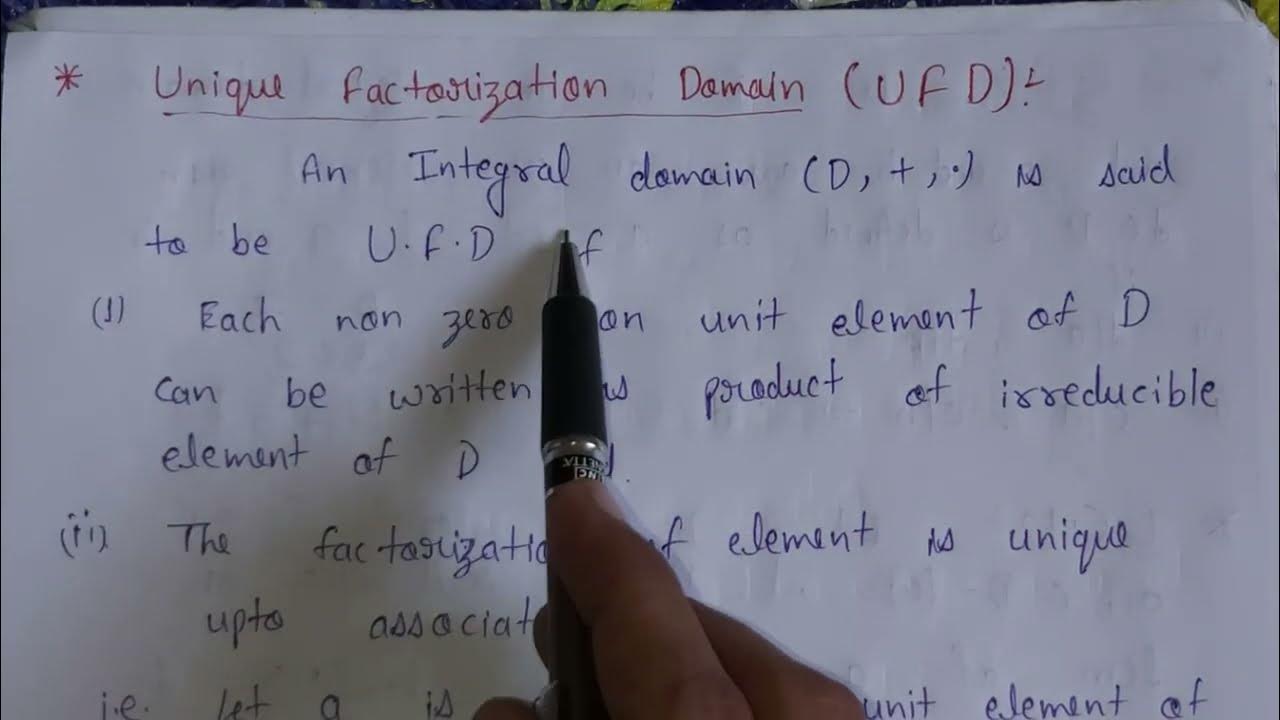 * Unique Factorization Domain (UFD):-
An Integral domain (D, +, ·) is said
to be U.F.D
(I) Each non zero unit element of D
can be written product of irreducible
element of D
(ii) The element is unique
upto
i.e. let a is unit element of